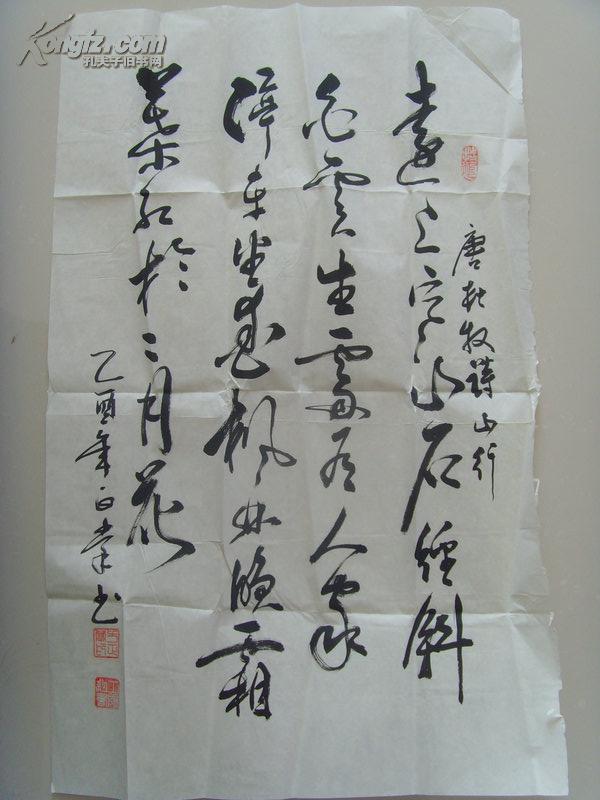 Kongfz.com
孔夫子旧书网
唐杜牧詩山行
遠上寒山石徑斜
白雲生處有人家
停車坐愛楓林晚霜
葉红於二月花
乙酉年正书